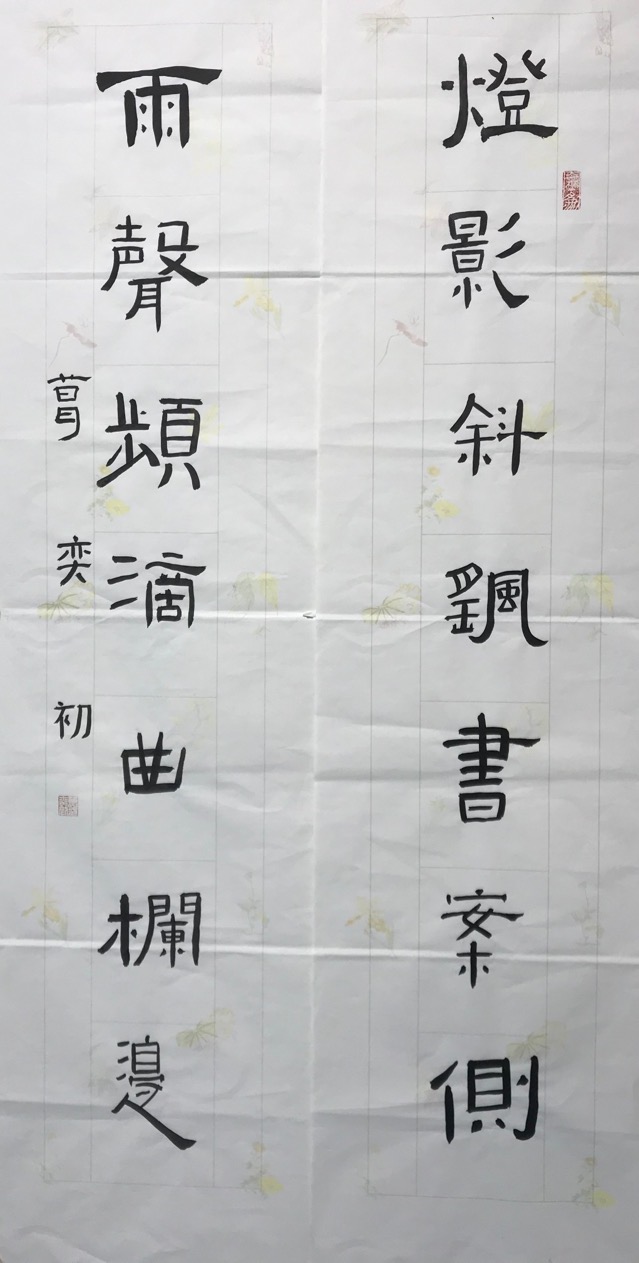 燈影斜飄書案側
雨聲頻滴曲欄邊
奕初